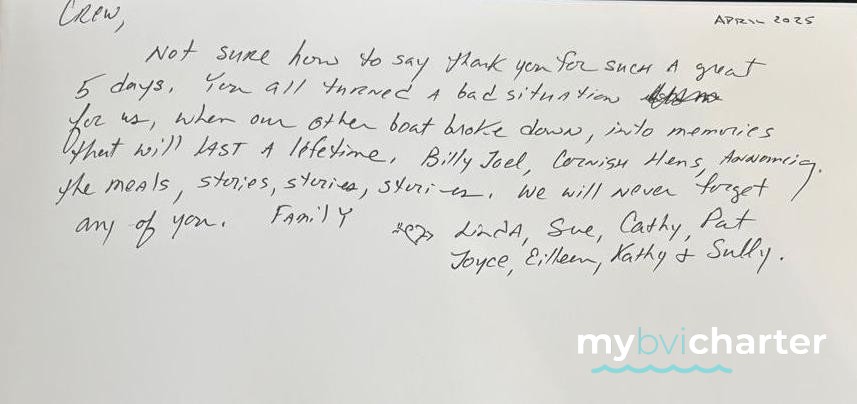 Crew,
APRIL 2025
Not sure how to say thank you for such a great
5 days. You all turned a bad situation
for us, when our other boat broke down, into memories
that will LAST A lifetime. Billy Joel, Cornish Hens, Announcing
the meals, stories, stories, stories. We will never forget
any of you. FAMILY
LindA, Sue, Cathy, Pat
Joyce, Eilleen, Kathy & Sully.
mybvicharter